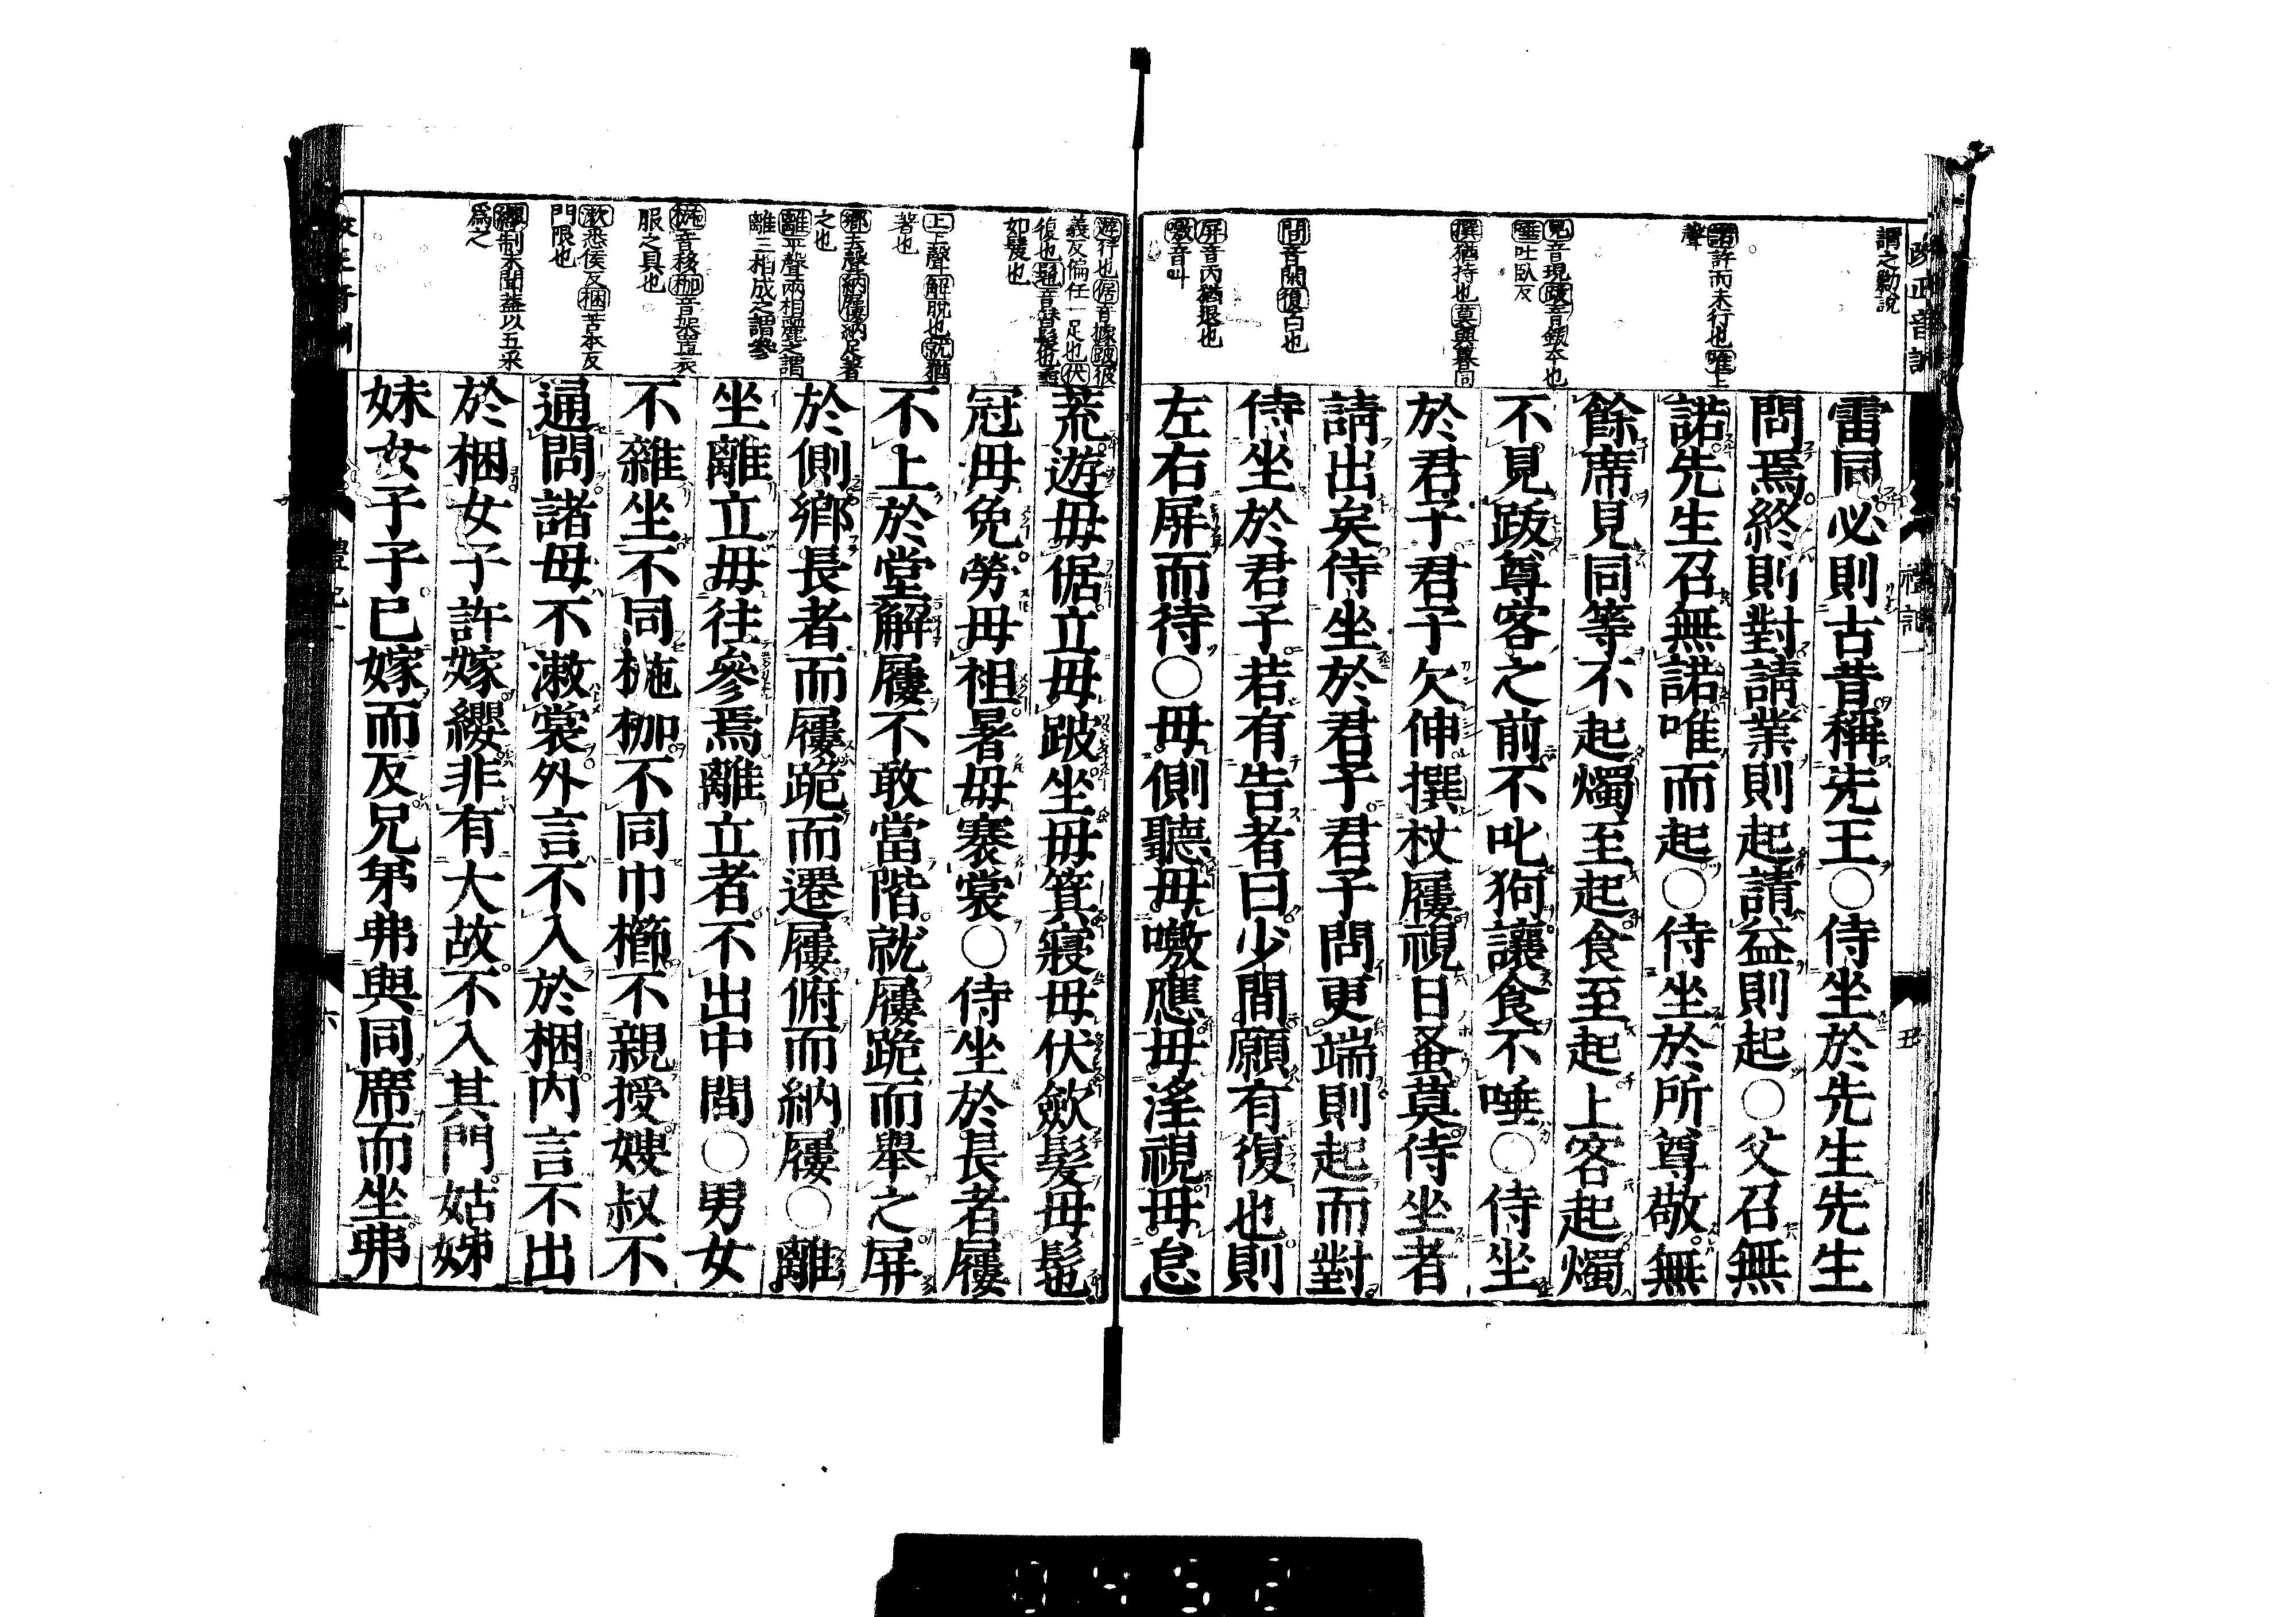 謂之勦說
諾許而未行也唯上
聲
見音現跋音鈸本也
唾吐臥反
撰猶持也莫與暮同
間音閑復白也
屏音丙猶退也
噭音叫
雷同必則古昔稱先王○侍坐於先生先生
問焉終則對請業則起請益則起○父召無
諾先生召無諾唯而起○侍坐於所尊敬無
餘席見同等不起燭至起食至起上客起燭
不見跋尊客之前不叱狗讓食不唾○侍坐
於君子君子欠伸撰杖屨視日蚤莫侍坐者
請出矣侍坐於君子君子問更端則起而對
侍坐於君子若有告者曰少間願有復也則
左右屏而待○毋側聽毋噭應毋淫視毋怠
禮記一
五
遊行也倨音據跛彼
義反偏任一足也伏
復也髢音替髮也垂
如髲也
上上聲解脫也就猶
著也
鄉去聲納屨納足著
之也
離平聲兩相麗之謂
離三相成之謂參
椸音移枷音架置衣
服之具也
漱悉侯反梱苦本反
門限也
纓制未聞蓋以五采
爲之
荒遊毋倨立毋跛坐毋箕寢毋伏斂髮毋髢
冠毋免勞毋袒暑毋褰裳○侍坐於長者屨
不上於堂解屨不敢當階就屨跪而舉之屏
於側鄉長者而屨跪而遷屨俯而納屨○離
坐離立毋往參焉離立者不出中間○男女
不雜坐不同椸枷不同巾櫛不親授嫂叔不
通問諸母不漱裳外言不入於梱內言不出
於梱女子許嫁纓非有大故不入其門姑姊
妹女子子已嫁而反兄弟弗與同席而坐弗
六